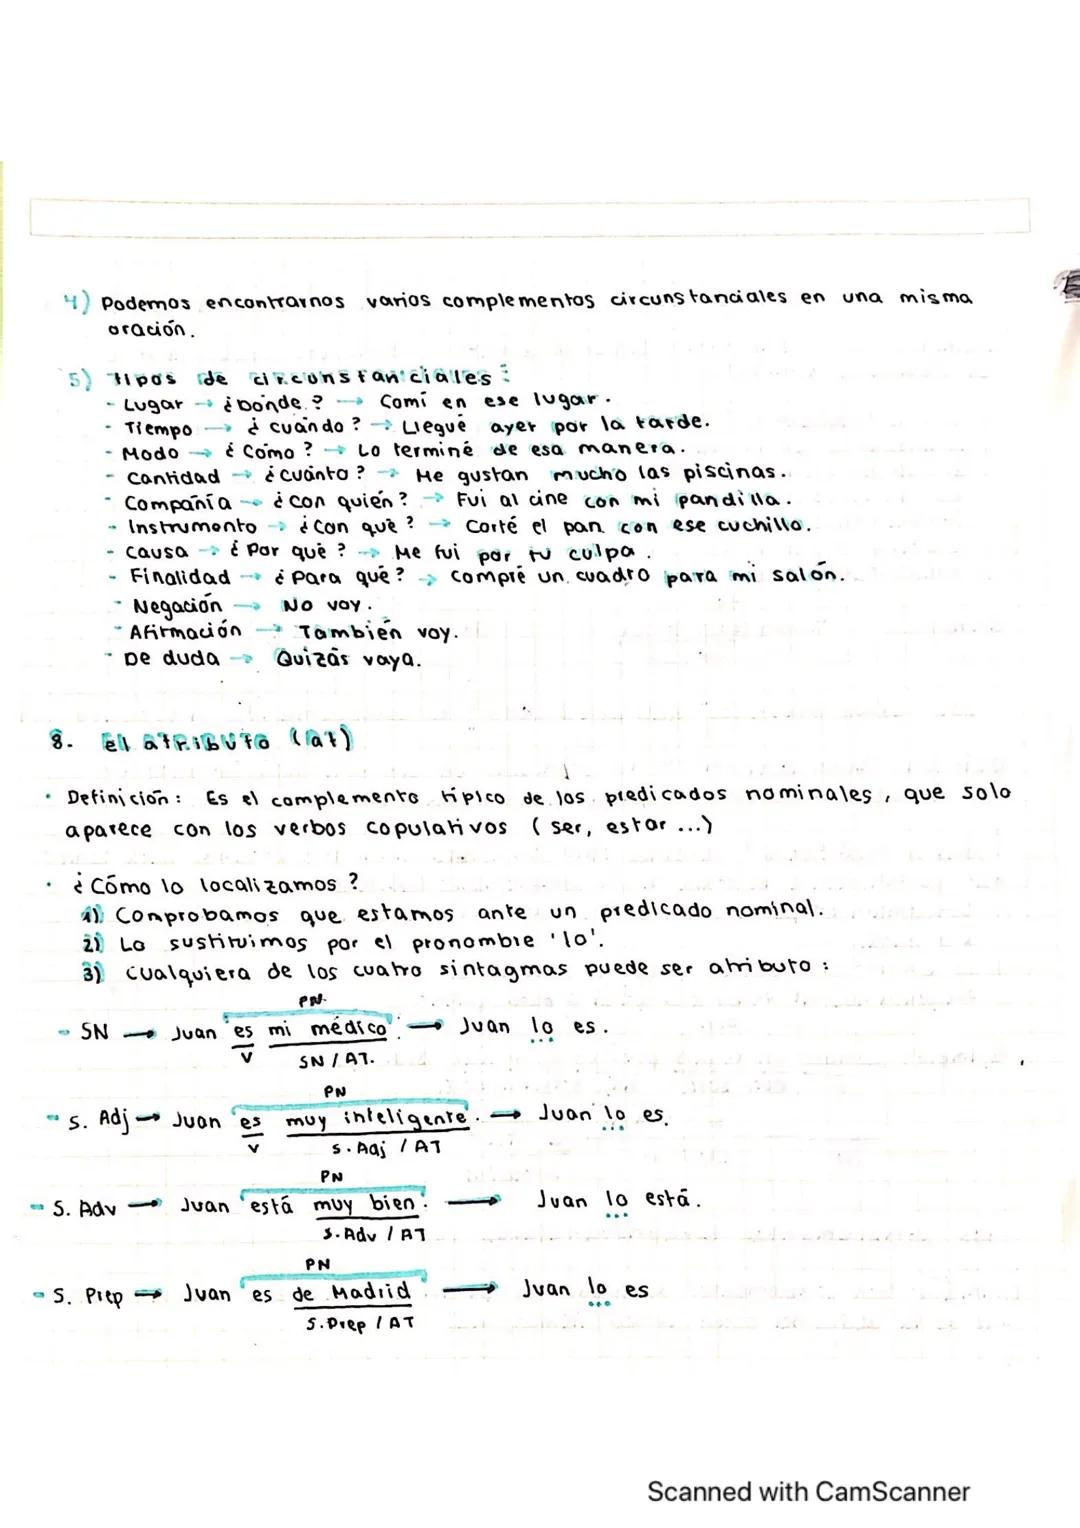 4) Podemos encontrarnos varios complementos circunstanciales en una misma
oración.
5) Tipos de circunstanciales:
- Lugar → ¿Dónde? → Comí en ese lugar.
- Tiempo → ¿cuándo? → Llegué ayer por la tarde.
- Modo → ¿Cómo? → Lo terminé de esa manera.
- Cantidad → ¿cuánto? → Me gustan mucho las piscinas.
- Compañía → ¿Con quién? → Fui al cine con mi pandilla.
- Instrumento → ¿Con qué? → Corté el pan con ese cuchillo.
- Causa → ¿Por qué? → Me fui por tu culpa.
- Finalidad → ¿Para qué? → Compré un cuadro para mi salón.
- Negación → No voy.
- Afirmación → También voy.
- De duda → Quizás vaya.
8. El atributo (at)
• Definición: Es el complemento típico de los predicados nominales, que solo
aparece con los verbos copulativos (ser, estar ...)
• ¿Cómo lo localizamos?
1) Comprobamos que estamos ante un predicado nominal.
2) Lo sustituimos por el pronombre 'lo'.
3) Cualquiera de los cuatro sintagmas puede ser atributo:
PN.
- SN → Juan es mi médico. → Juan lo es.
V SN / AT.
PN
- S. Adj → Juan es muy inteligente. → Juan lo es.
V S. Adj / AT
PN
- S. Adv → Juan está muy bien. → Juan lo está.
S. Adv / AT
PN
- S. Prep → Juan es de Madrid → Juan lo es
S. Prep / AT
Scanned with CamScanner